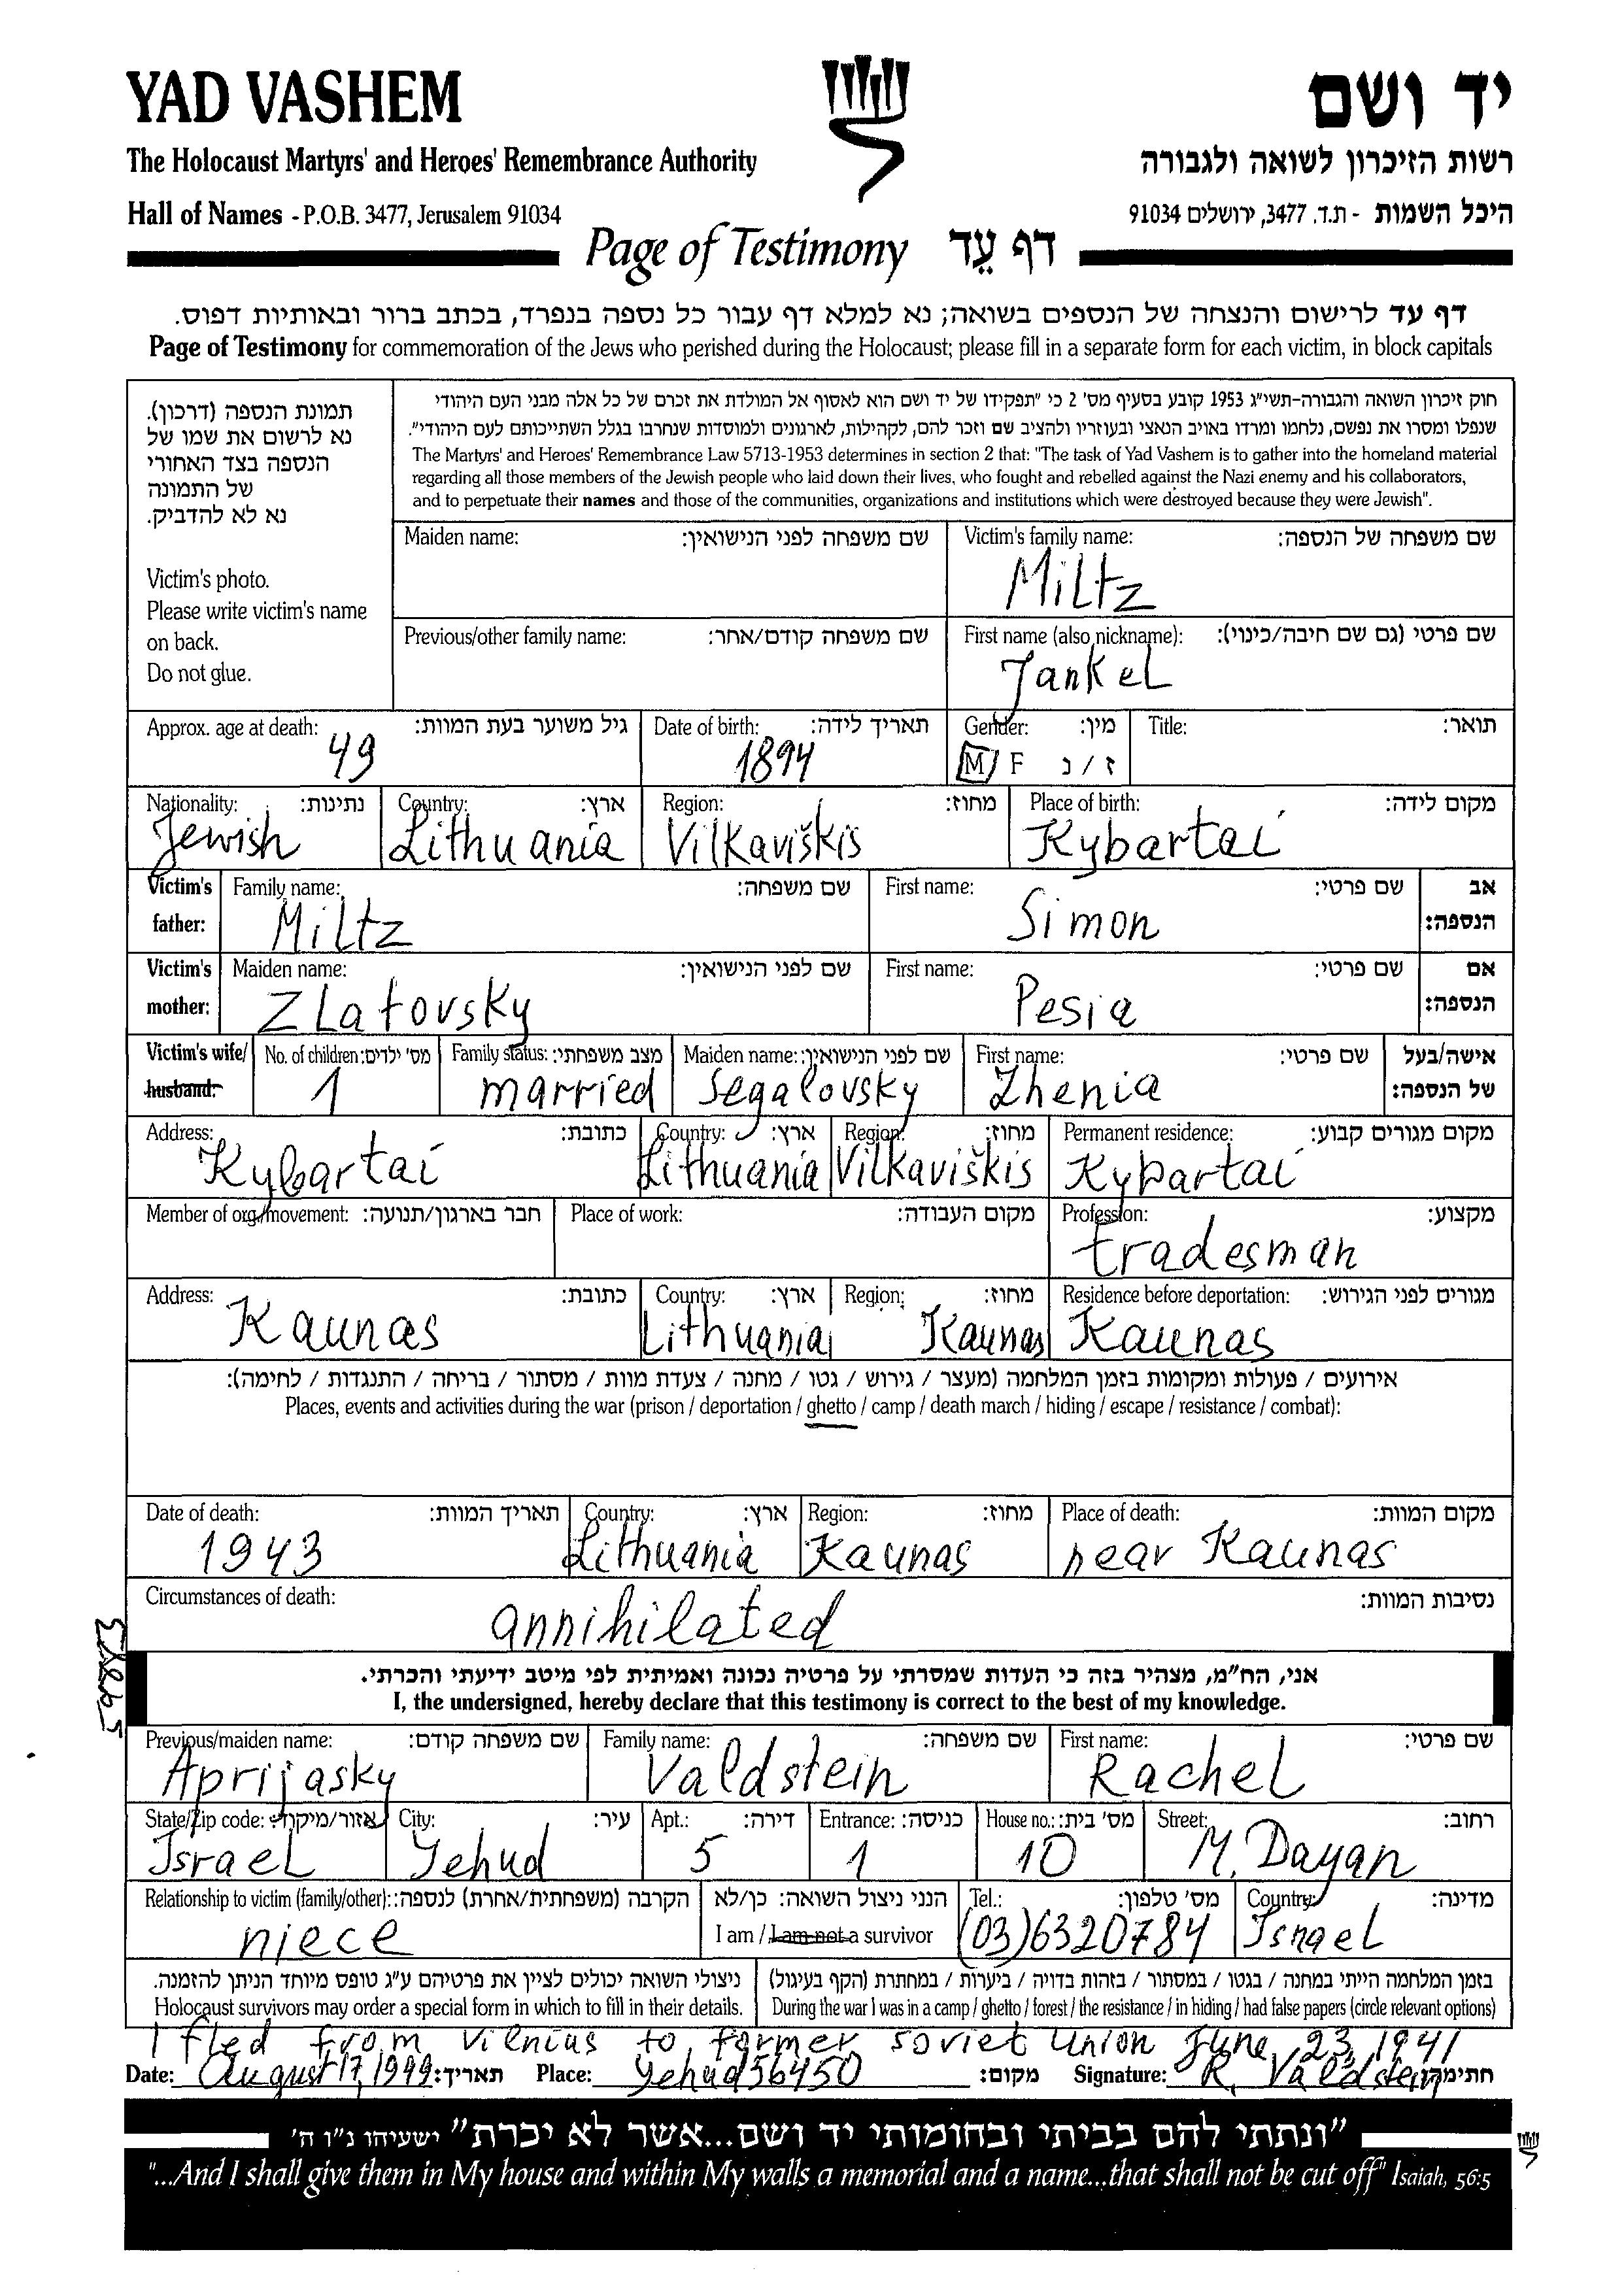 YAD VASHEM
יד ושם
The Holocaust Martyrs' and Heroes' Remembrance Authority
רשות הזיכרון לשואה ולגבורה
Hall of Names - P.O.B. 3477, Jerusalem 91034
היכל השמות - ת.ד. 3477, ירושלים 91034
Page of Testimony דף עֵד
דף עד לרישום והנצחה של הנספים בשואה; נא למלא דף עבור כל נספה בנפרד, בכתב ברור ובאותיות דפוס.
Page of Testimony for commemoration of the Jews who perished during the Holocaust; please fill in a separate form for each victim, in block capitals
תמונת הנספה (דרכון).
נא לרשום את שמו של
הנספה בצד האחורי
של התמונה
נא לא להדביק.
Victim's photo.
Please write victim's name
on back.
Do not glue.
חוק זיכרון השואה והגבורה-תשי"ג 1953 קובע בסעיף מס' 2 כי "תפקידו של יד ושם הוא לאסוף אל המולדת את זכרם של כל אלה מבני העם היהודי
שנפלו ומסרו את נפשם, נלחמו ומרדו באויב הנאצי ובעוזריו ולהציב שם וזכר להם, לקהילות, לארגונים ולמוסדות שנחרבו בגלל השתייכותם לעם היהודי".
The Martyrs' and Heroes' Remembrance Law 5713-1953 determines in section 2 that: "The task of Yad Vashem is to gather into the homeland material
regarding all those members of the Jewish people who laid down their lives, who fought and rebelled against the Nazi enemy and his collaborators,
and to perpetuate their names and those of the communities, organizations and institutions which were destroyed because they were Jewish".
Maiden name: שם משפחה לפני הנישואין: Victim's family name: שם משפחה של הנספה:
Miltz
Previous/other family name: שם משפחה קודם/אחר: First name (also nickname): שם פרטי (גם שם חיבה/כינוי):
Jankel
Approx. age at death: גיל משוער בעת המוות: Date of birth: תאריך לידה: Gender: מין: Title: תואר:
49 1894 M / F ז / נ
Nationality: נתינות: Country: ארץ: Region: מחוז: Place of birth: מקום לידה:
Jewish Lithuania Vilkaviškis Kybartai
Victim's father: Family name: שם משפחה: First name: שם פרטי: אב הנספה:
Miltz Simon
Victim's mother: Maiden name: שם לפני הנישואין: First name: שם פרטי: אם הנספה:
Zlatovsky Pesia
Victim's wife/ husband: No. of children: מס' ילדים: Family status: מצב משפחתי: Maiden name: שם לפני הנישואין: First name: שם פרטי: אישה/בעל של הנספה:
1 married Segalovsky Zhenia
Address: כתובת: Country: ארץ: Region: מחוז: Permanent residence: מקום מגורים קבוע:
Kybartai Lithuania Vilkaviškis Kybartai
Member of org./movement: חבר בארגון/תנועה: Place of work: מקום העבודה: Profession: מקצוע:
tradesman
Address: כתובת: Country: ארץ: Region: מחוז: Residence before deportation: מגורים לפני הגירוש:
Kaunas Lithuania Kaunas Kaunas
אירועים / פעולות ומקומות בזמן המלחמה (מעצר / גירוש / גטו / מחנה / צעדת מוות / מסתור / בריחה / התנגדות / לחימה):
Places, events and activities during the war (prison / deportation / ghetto / camp / death march / hiding / escape / resistance / combat):
Date of death: תאריך המוות: Country: ארץ: Region: מחוז: Place of death: מקום המוות:
1943 Lithuania Kaunas near Kaunas
Circumstances of death: נסיבות המוות:
annihilated
אני, הח"מ, מצהיר בזה כי העדות שמסרתי על פרטיה נכונה ואמיתית לפי מיטב ידיעתי והכרתי.
I, the undersigned, hereby declare that this testimony is correct to the best of my knowledge.
Previous/maiden name: שם משפחה קודם: Family name: שם משפחה: First name: שם פרטי:
Aprijasky Valdstein Rachel
State/Zip code: אזור/מיקוד: City: עיר: Apt.: דירה: Entrance: כניסה: House no.: מס' בית: Street: רחוב:
Israel Yehud 5 1 10 M. Dayan
Relationship to victim (family/other): הקרבה (משפחתית/אחרת) לנספה: הנני ניצול השואה: כן/לא Tel.: מס' טלפון: Country: מדינה:
niece I am / I am not a survivor (03)6320784 Israel
ניצולי השואה יכולים לציין את פרטיהם ע"ג טופס מיוחד הניתן להזמנה. בזמן המלחמה הייתי במחנה / בגטו / במסתור / בזהות בדויה / ביערות / במחתרת (הקף בעיגול)
Holocaust survivors may order a special form in which to fill in their details. During the war I was in a camp / ghetto / forest / the resistance / in hiding / had false papers (circle relevant options)
I fled from Vilnius to former Soviet Union June, 23, 1941
Date: August 17, 1999 תאריך: Place: Yehud 56450 מקום: Signature: R. Valdstein חתימה:
"ונתתי להם בביתי ובחומותי יד ושם...אשר לא יכרת" ישעיהו נ"ו ה'
"...And I shall give them in My house and within My walls a memorial and a name...that shall not be cut off" Isaiah, 56:5